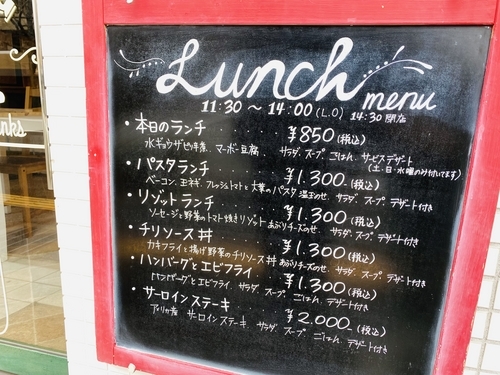 Lunch menu
11:30 ～ 14:00 (L.O) 14:30 閉店
・本日のランチ ¥850(税込)
水ギョウザ マーボー豆腐 サラダ、スープ、ごはん、サービスデザート
(土・日・水曜のみ付いてます)
・パスタランチ ¥1.300-(税込)
ベーコン、玉ネギ、フレッシュトマトと大葉のパスタ 温玉のせ、サラダ、スープ、デザート付き
・リゾットランチ ¥1.300(税込)
ソーセージと野菜のトマト焼きリゾット あぶりチーズのせ、サラダ、スープ、デザート付き
・チリソース丼 ¥1.300(税込)
カキフライと揚げ野菜のチリソース丼 あぶりチーズのせ、サラダ、スープ、デザート付き
・ハンバーグとエビフライ ¥1.300(税込)
ハンバーグとエビフライ、サラダ、スープ、ごはん、デザート付き
・サーロインステーキ ¥2.000-(税込)
アメリカ産 サーロインステーキ サラダ、スープ、ごはん、デザート付き